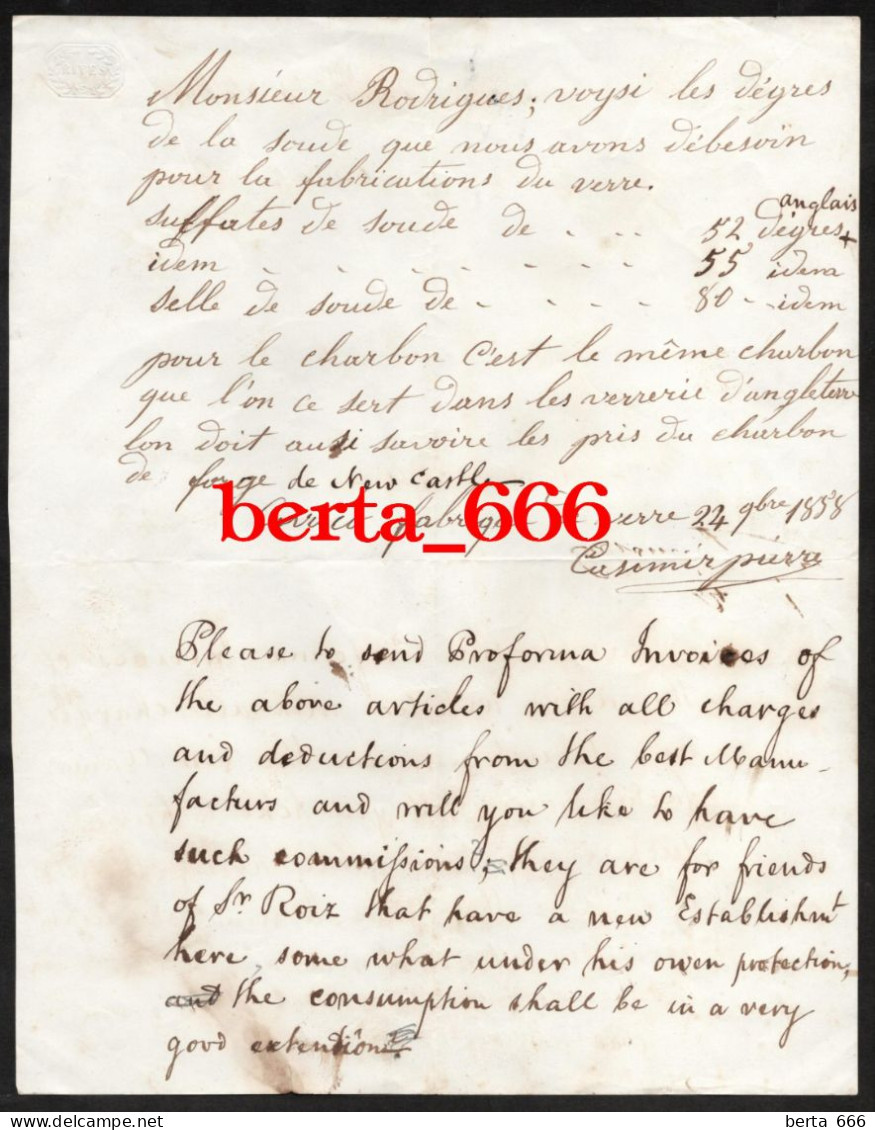 Monsieur Rodrigues; voysi les dégres
de la soude que nous avons débesoin
pour la fabrications du verre.
anglais
sulfates de soude de - - - 52 dégres +
idem - - - - - - - 55 idem
selle de soude de - - - - 80 - idem
pour le charbon C'est le même charbon
que l'on ce sert dans les verrerie d'angleterre
lon doit ausi savoire les pris du charbon
de forge de New Castle
berta_666
verre 24 9bre 1858
Casimir pierre
Please to send Proforma Invoices of
the above articles with all charges
and deductions from the best Manu-
facturs and will you like to have
such commissions, they are for friends
of Sr. Roiz that have a new Establishmt
here, some what under his owen protection,
and the consumption shall be in a very
good extendión
berta_666